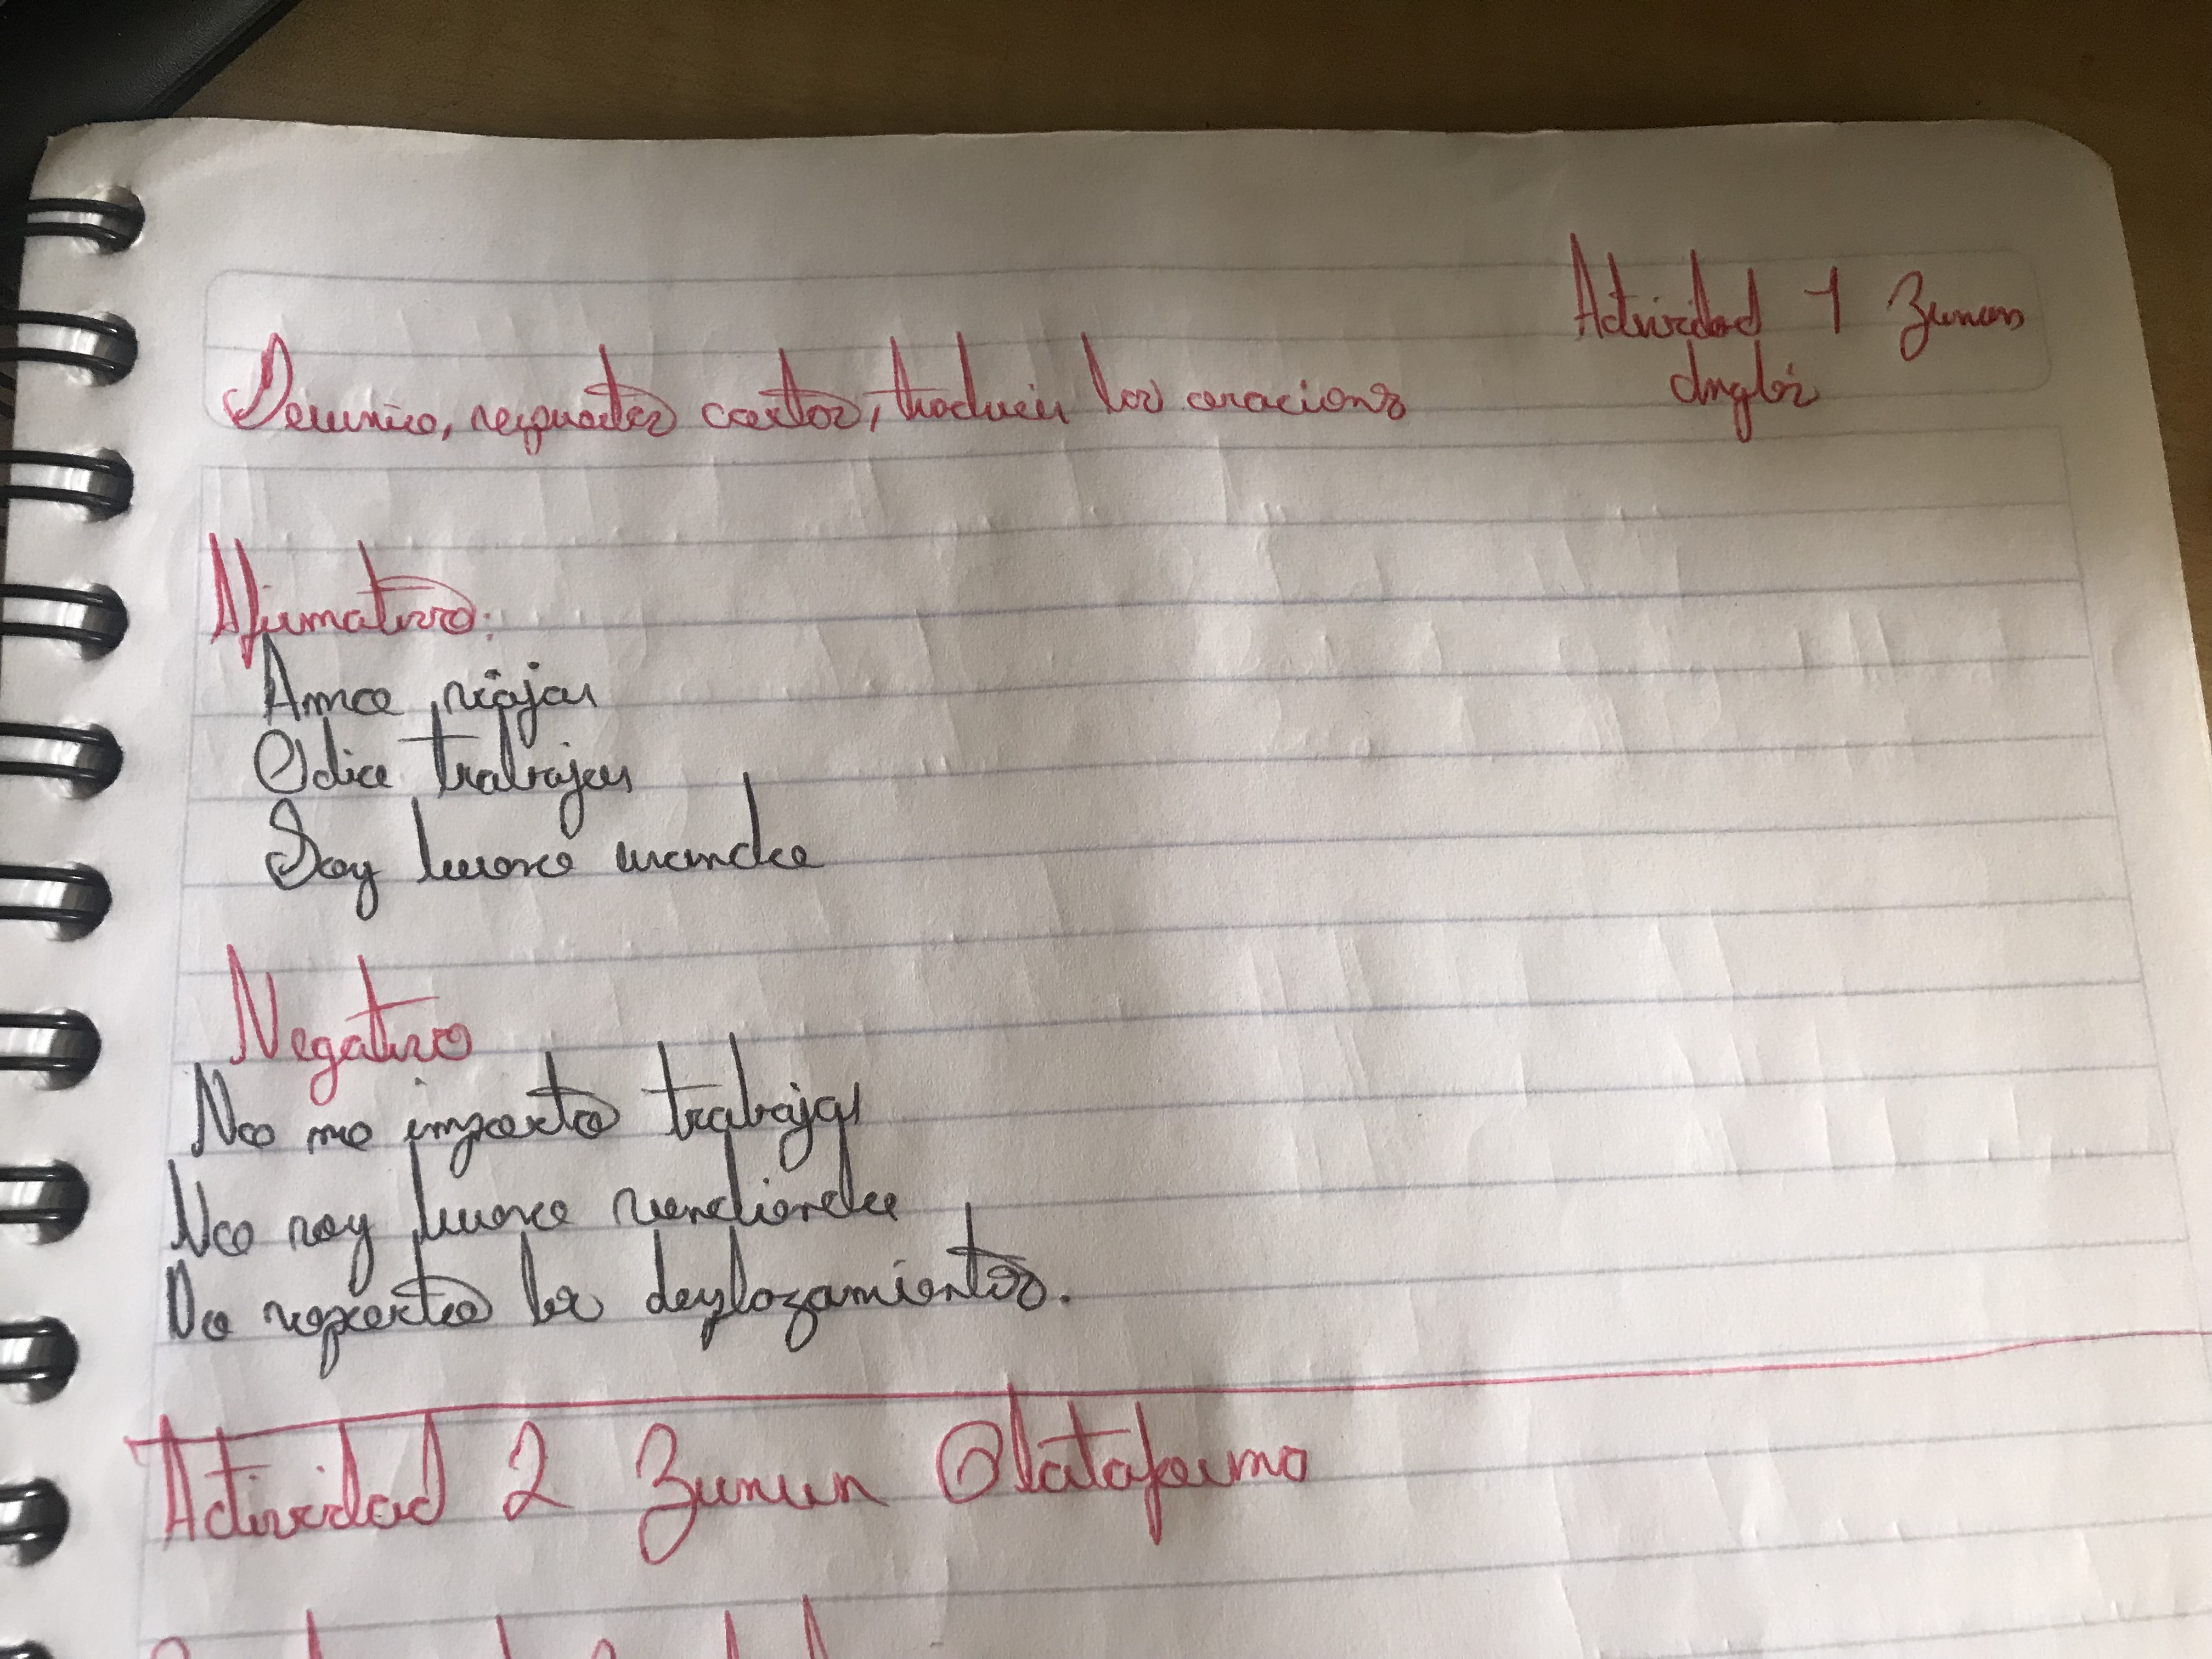 Actividad 1 Zunun
Inglés
respuestas cortas, traducir las oraciones
Afirmativo:
Amo viajar
Odio trabajar
Soy bueno usando
Negativo
No me importa trabajar
No soy bueno vendiendo
No soporto los desplazamientos.
Actividad 2 Zunun Plataforma